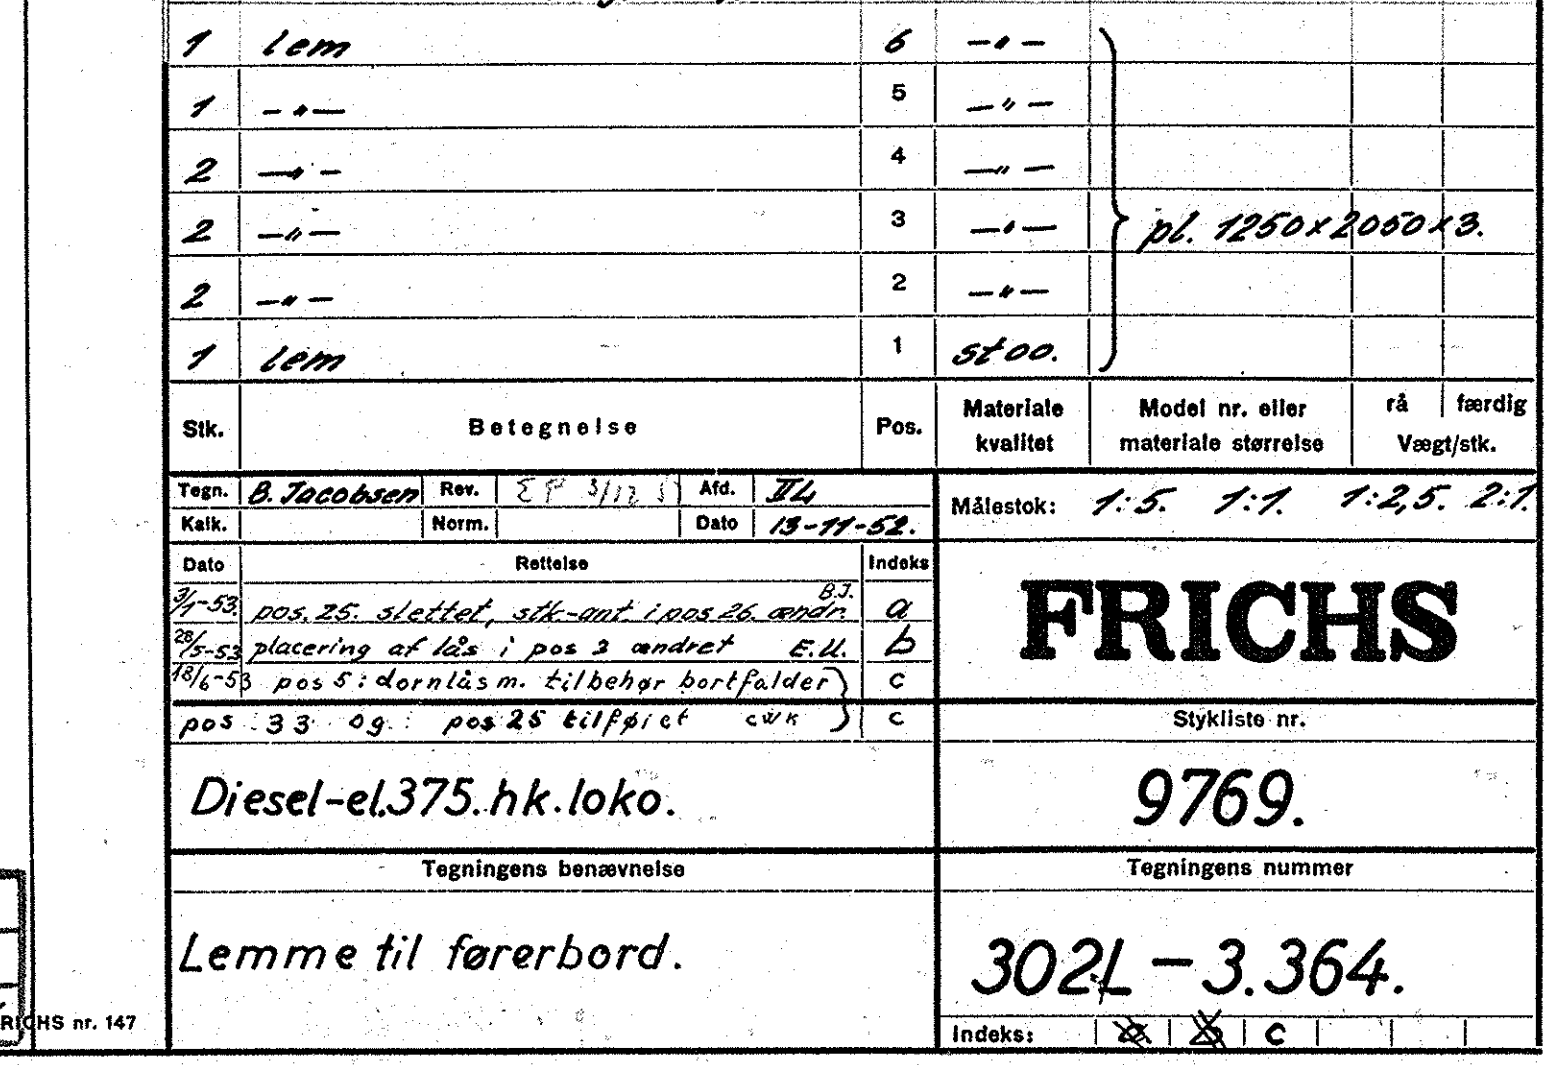 1 lem 6 —〃—
1 —〃— 5 —〃—
2 —〃— 4 —〃—
2 —〃— 3 —〃— pl. 1250x2050x3.
2 —〃— 2 —〃—
1 lem 1 st 00.
Stk. Betegnelse Pos. Materiale kvalitet Model nr. eller materiale størrelse rå færdig Vægt/stk.
Tegn. B. Jacobsen Rev. Afd. II L Målestok: 1:5. 1:1. 1:2,5. 2:1.
Kalk. Norm. Dato 13-11-52.
Dato Rettelse Indeks
3/1-53. pos. 25. slettet, stk-ant. i pos 26. ændr. B.J. a
28/5-53 placering af lås i pos 3 ændret E.U. b
18/6-53 pos 5: dornlås m. tilbehør bortfalder c
pos 33 og pos 25 tilføjet cwk c
FRICHS
Stykliste nr.
Diesel-el.375.hk.loko. 9769.
Tegningens benævnelse Tegningens nummer
Lemme til førerbord. 302L-3.364.
RICHS nr. 147
Indeks: a b c